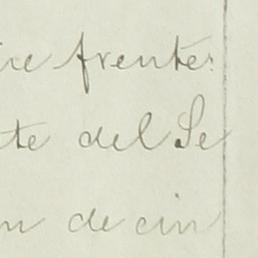 frente:
te del Se
n de cin